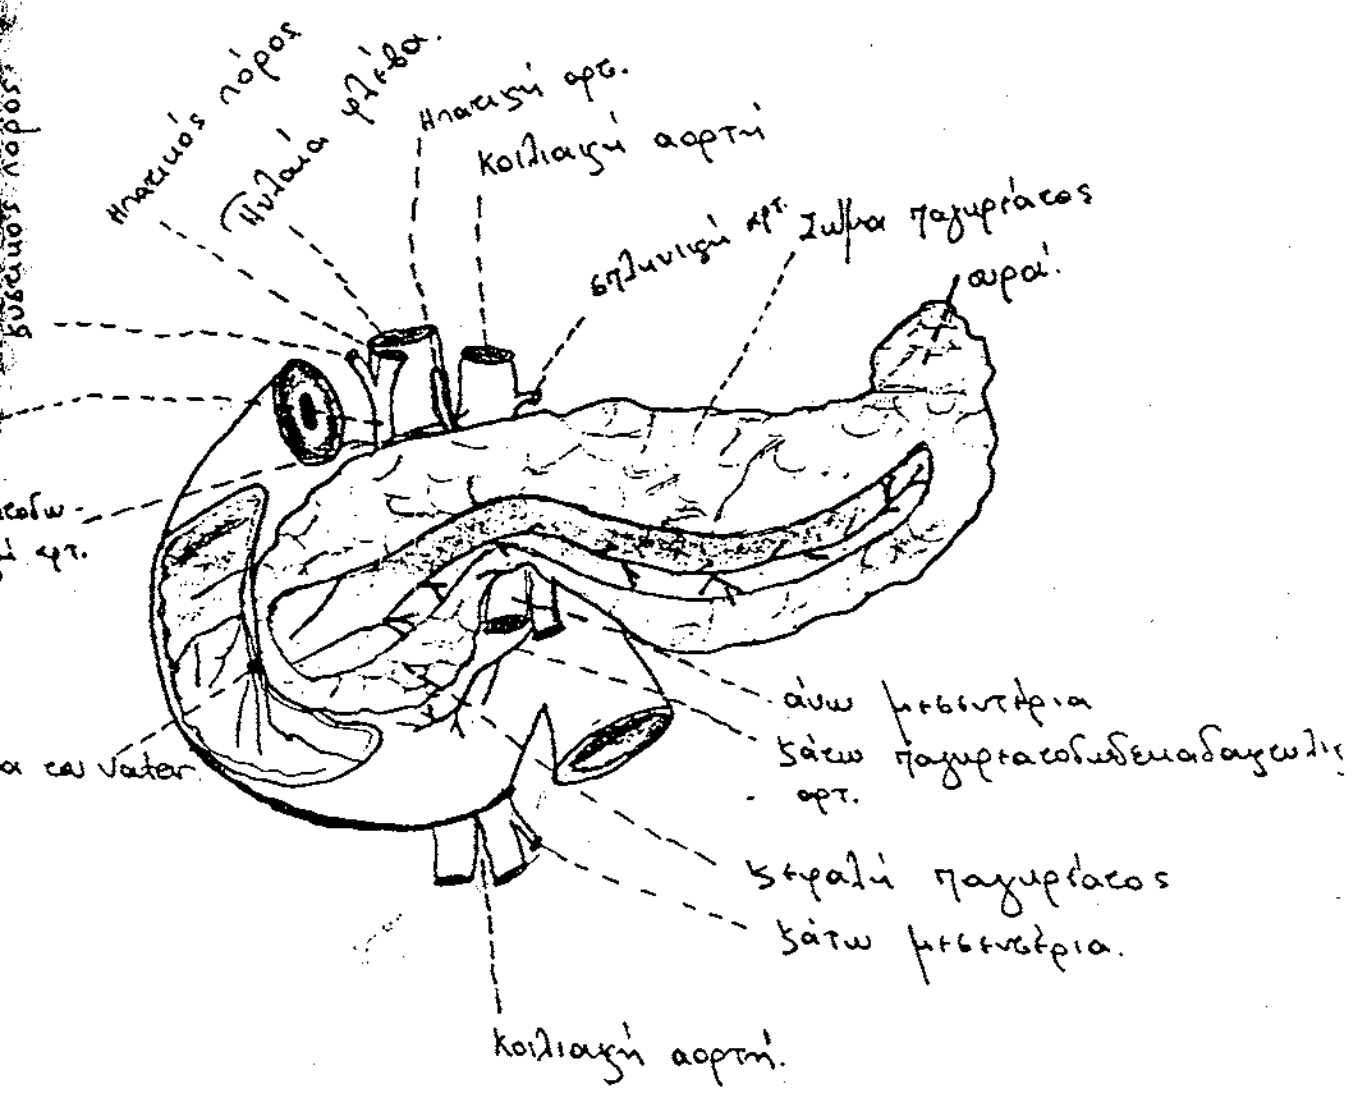 κυστικός πόρος
Ηπατικός πόρος
Πυλαία φλέβα.
Ηπατική αρτ.
κοιλιακή αορτή
σπληνική αρτ.
Σώμα παγκρέατος
ουρά.
αρτ.
άνω μεσεντέρια
κάτω παγκρεατοδωδεκαδακτυλικ
αρτ.
Vater
κεφαλή παγκρέατος
κάτω μεσεντέρια.
κοιλιακή αορτή.